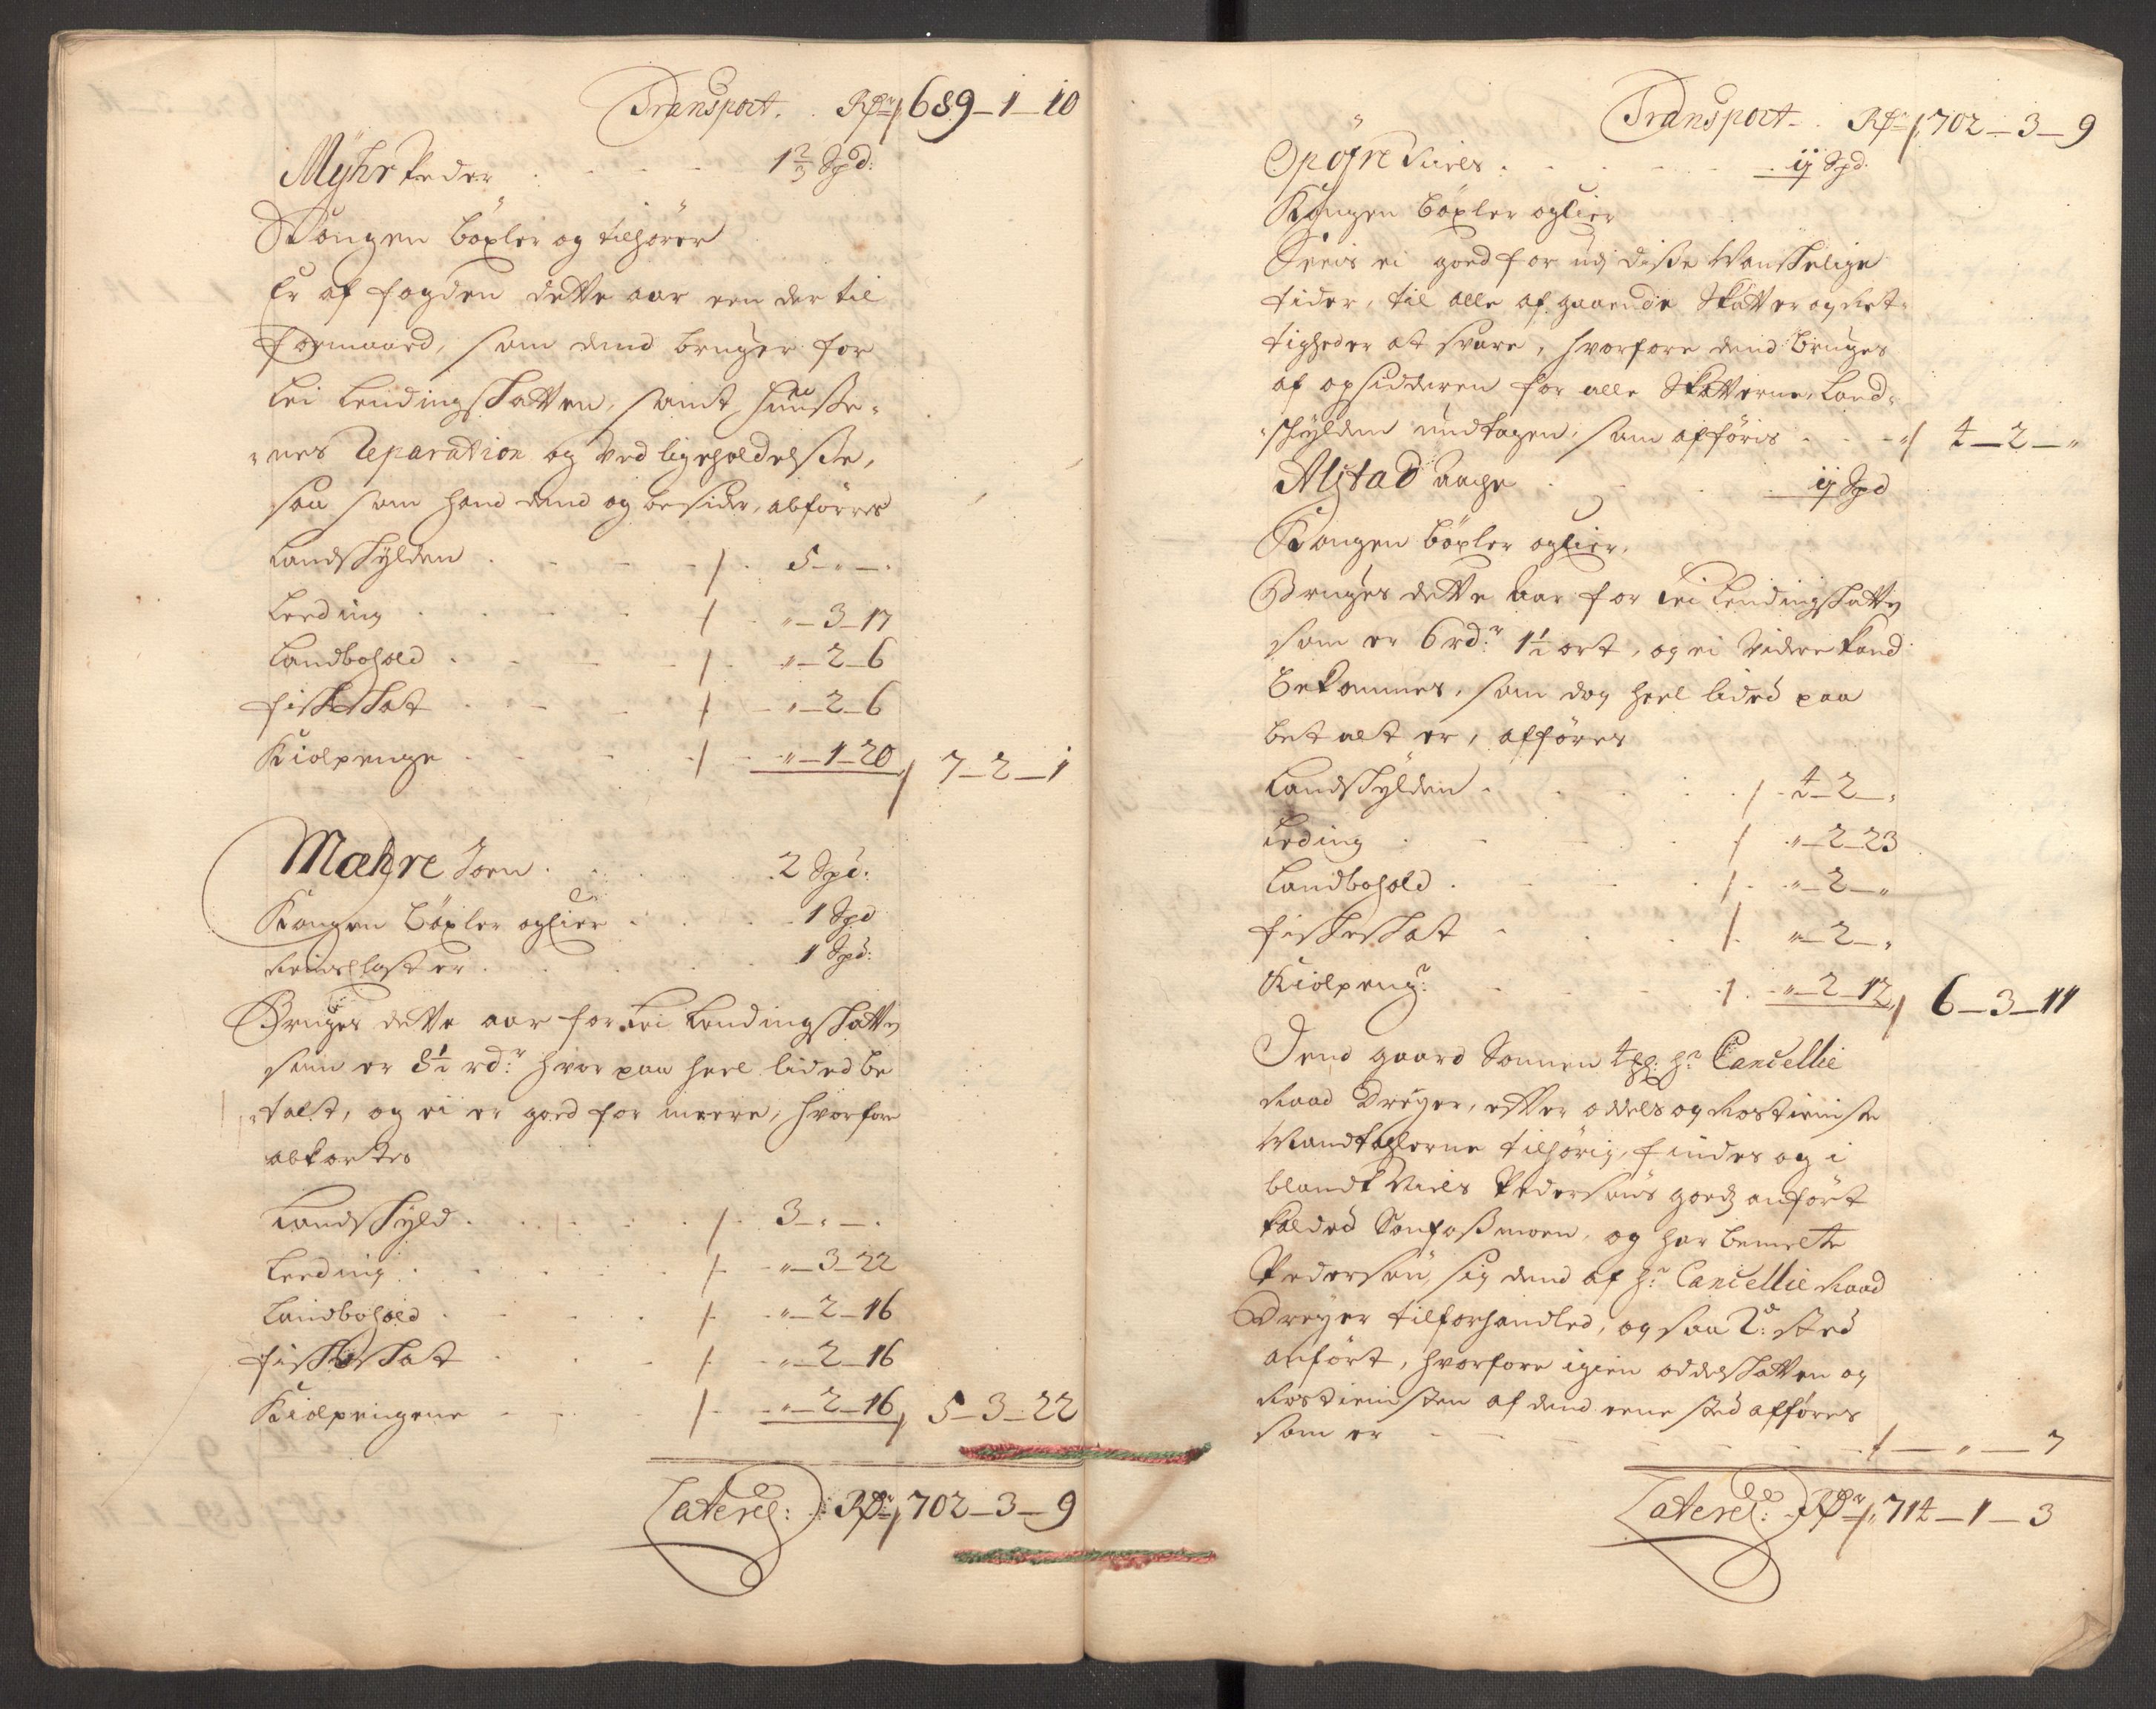 Transport. Rdr 689–1–10
Myhr Peder . . . 1 2/3 Spd:
Kongen böxler og tilhører
Er af fogden dette aar een der til
formaaed, som dend bruger for
Lei Lendingsskatten, samt husse-
nes Reparation og ved ligeholdelsse,
saa som hand dend og besider, abførres
Landskylden . . . 5–„–„
Leeding . . . „–3–17
Landbohold . . . „–2–6
fiskeskat . . . „–2–6
Kiølpenge . . . „–1–20 7–2–1
Mæhre Joen . . . 2 Spd:
Kongen böxler og Eier . . . 1 Spd
Reins Closter . . . 1 Spd:
Bruges dette aar for Lei Lendingsskatten
som er 8½ rdr hvor paa heel lided be
talt, og ei er goed for meere, hvorfore
abkortes
Landskyld . . . 3–„–„
Leeding . . . „–3–22
Landbohold . . . „–2–16
fiskeskat . . . „–2–16
Kiølpengene . . . „–2–16 5–3–22
Lateris: Rdr 702–3–9
Transport Rdr 702–3–9
Opøfre Niels . . . ij Spd.
Kongen böxler og Eier
Sees ei goed for udj disse Vanskelige
tider, til alle af gaaende Skatter og Ret-
tigheder at svare, hvorfore dend bruges
af opsidderen for alle Skatterne, Land-
skylden undtagen, som afføris . . . 4–2–„
Alstad Aage . . . ij Spd
Kongen böxler og Eier.
Bruges dette Aar for Lei Lendingsskatten
som er 6 rdr 1½ ort, og ei videre kand
bekommes, som dog heel lided paa
betalt er, afføres
Landskylden . . . 4–2–„
Leding . . . „–2–23
Landbohold . . . „–2–„
fiskeskat . . . „–2–„
Kiølpeng: . . . „–2–12 6–3–11
Dend gaard Sonmen hr Cancellie
Raad Dreyer, efter oddels og Rostieniste
Mandtallerne tilhørig, findes og i
blandt Niels Pedersøns goeds anført
kalded Sonfossmoen, og har bemelte
Pedersøn sig dend af hr Cancellie Raad
Dreyer tilforhandled, og saa 2de sted
anført, hvorfore igien oddelsskatten og
Rostienisten af dend eene sted afføres
som er . . . 1–„–7
Lateris: Rdr 714–1–3